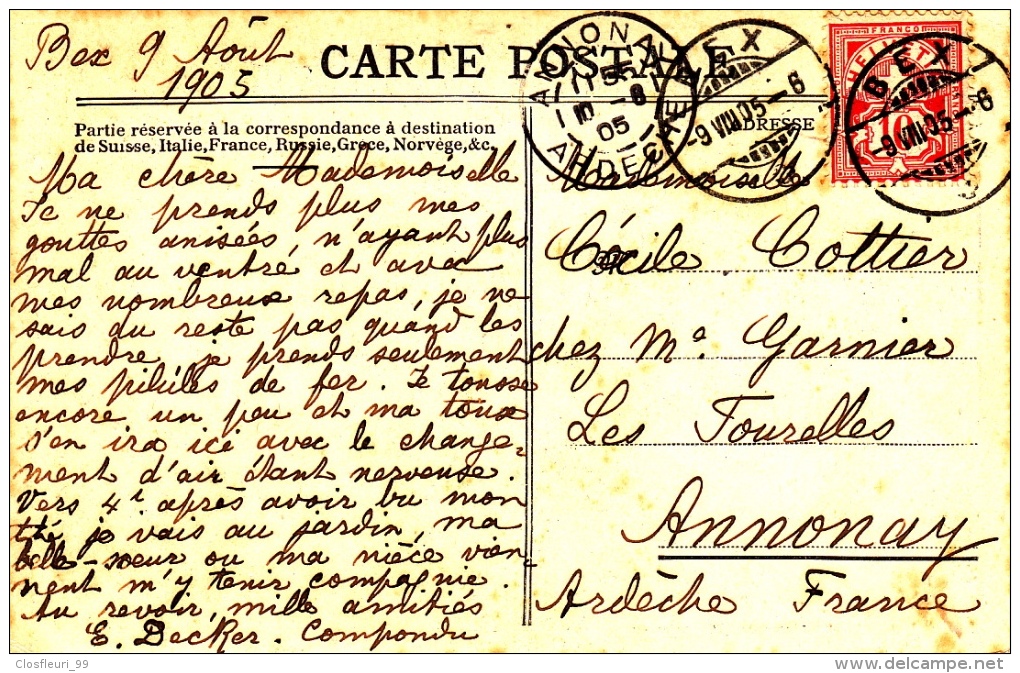 Bex 9 Août
1905
CARTE POSTALE
Partie réservée à la correspondance à destination
de Suisse, Italie, France, Russie, Grèce, Norvège, &c.
ADRESSE
ANNONAY
10 -8
05
ARDECHE
BEX
-9 VIII 05 - 6
BEX
-9 VIII 05 - 6
FRANCO
HELVETIA
10
Ma chère Mademoiselle
Je ne prends plus mes
gouttes anisées, n'ayant plus
mal au ventre et avec
mes nombreux repas, je ne
sais du reste pas quand les
prendre, je prends seulement
mes pilules de fer. Je tousse
encore un peu et ma toux
s'en ira ici avec le change-
ment d'air étant nerveuse.
Vers 4h après avoir bu mon
thé je vais au jardin, ma
belle-soeur ou ma nièce vien
nent m'y tenir compagnie.
Au revoir, mille amitiés
E. Decker. Compondu
Mademoiselle
Cécile Cottier
chez Me. Garnier
Les Tourelles
Annonay
Ardèche France
Closfleuri_99
delcampe.net